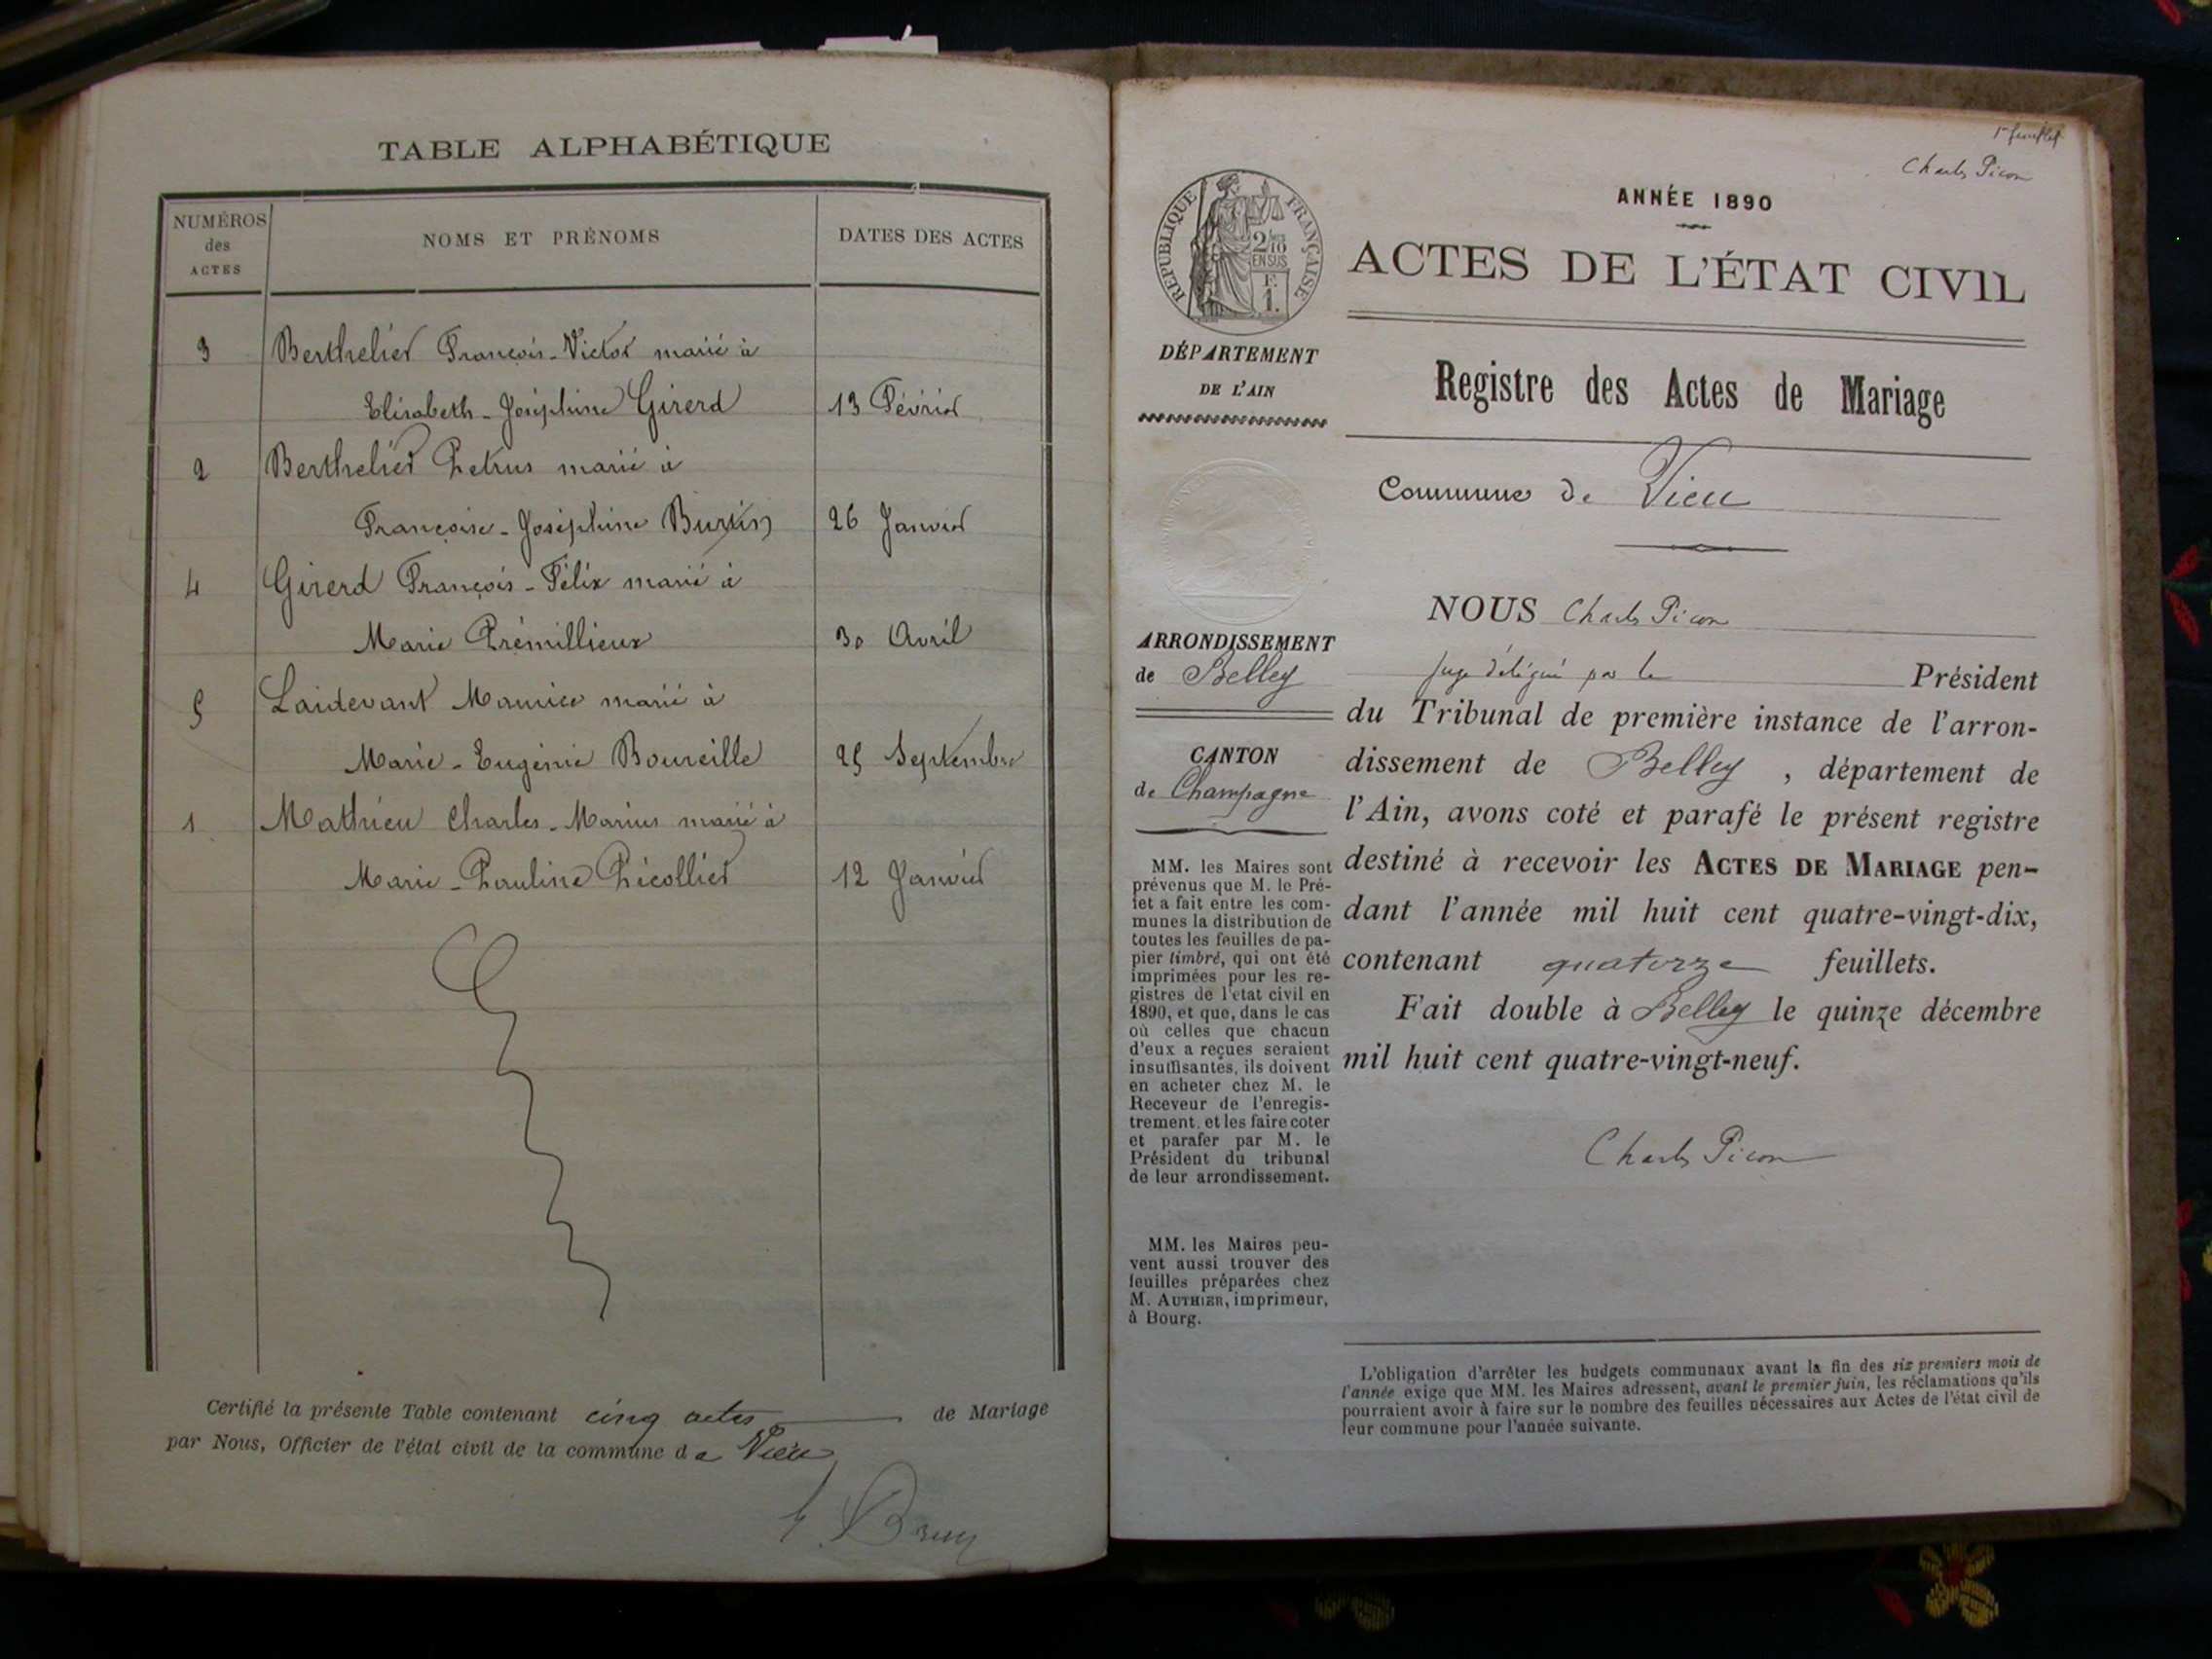 TABLE ALPHABÉTIQUE
NUMÉROS
des
ACTES
NOMS ET PRÉNOMS
DATES DES ACTES
3 Berthelier François-Victor marié à
Elisabeth-Joséphine Girerd 13 Février
2 Berthelier Petrus marié à
Françoise-Joséphine Burtin 26 Janvier
4 Girerd François-Félix marié à
Marie Prémillieux 30 Avril
5 Laidevant Maurice marié à
Marie-Eugénie Boureille 25 Septembre
1 Mathieu Charles-Marius marié à
Marie-Pauline Picollier 12 Janvier
Certifié la présente Table contenant cinq actes de Mariage
par Nous, Officier de l'état civil de la commune de Vieu
1er feuillet
Charles Picon
ANNÉE 1890
ACTES DE L'ÉTAT CIVIL
RÉPUBLIQUE FRANÇAISE
2/10
EN SUS
F.
1.
DÉPARTEMENT
DE L'AIN
Registre des Actes de Mariage
Commune de Vieu
ARRONDISSEMENT
de Belley
CANTON
de Champagne
MM. les Maires sont
prévenus que M. le Pré-
fet a fait entre les com-
munes la distribution de
toutes les feuilles de pa-
pier timbré, qui ont été
imprimées pour les re-
gistres de l'état civil en
1890, et que, dans le cas
où celles que chacun
d'eux a reçues seraient
insuffisantes, ils doivent
en acheter chez M. le
Receveur de l'enregis-
trement, et les faire coter
et parafer par M. le
Président du tribunal
de leur arrondissement.
MM. les Maires peu-
vent aussi trouver des
feuilles préparées chez
M. AUTHIER, imprimeur,
à Bourg.
NOUS Charles Picon
Juge délégué par le Président
du Tribunal de première instance de l'arron-
dissement de Belley, département de
l'Ain, avons coté et parafé le présent registre
destiné à recevoir les ACTES DE MARIAGE pen-
dant l'année mil huit cent quatre-vingt-dix,
contenant quatorze feuillets.
Fait double à Belley le quinze décembre
mil huit cent quatre-vingt-neuf.
Charles Picon
L'obligation d'arrêter les budgets communaux avant la fin des six premiers mois de
l'année exige que MM. les Maires adressent, avant le premier juin, les réclamations qu'ils
pourraient avoir à faire sur le nombre des feuilles nécessaires aux Actes de l'état civil de
leur commune pour l'année suivante.